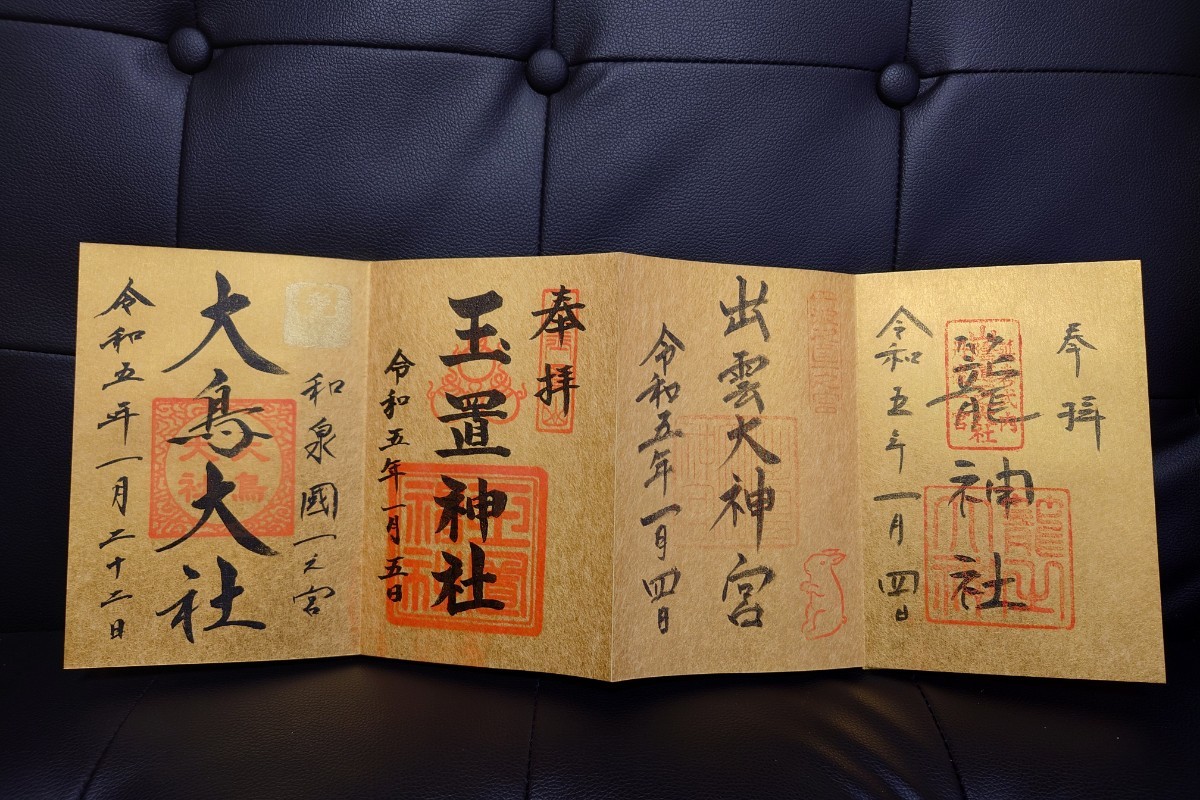 奉拝
籠神社
令和五年一月四日
出雲大神宮
令和五年一月四日
奉拝
玉置神社
令和五年一月五日
和泉國一之宮
大鳥大社
令和五年一月二十二日